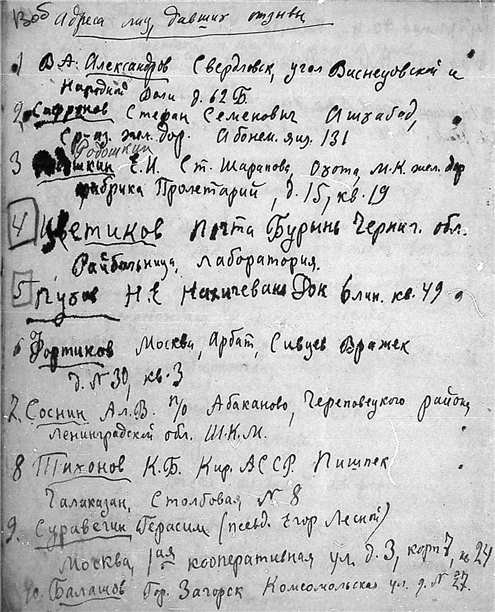 Адреса лиц, давших отзывы
1 В.А. Александров Свердловск, угол Виснецовской и
Народной Воли д. 62 Б.
2. Сафронов Стефан Семенович Ашхабад,
Ср-аз. жел. дор. Абонем. ящ. 131
Робошкин
3 Е.И. Ст. Шарапова, Охота, М.К. жел. дор
фабрика Пролетарий, д. 15, кв. 19
4 Цветиков Почта Бурынь Черниг. обл.
Райбольница, лаборатория.
5 Пухов Н.Е Нахичевань Дон 6 лин. кв. 49
6 Фортиков Москва, Арбат, Сивцев Вражек
д. N 30, кв. 3
7. Соснин Ал. В. п/о Абаканово, Череповецкого района,
Ленинградской обл. Ш.К.М.
8 Тихонов К.Б. Кир. АССР Пишпек
Чалаказан, Столбовая N 8
9. Суравегин Герасим (псевд. Егор Лесной)
Москва, 1ая кооперативная ул. д. 3, корп 7, 24
10. Балашов Гор. Загорск Комсомольская ул. д. N 27.